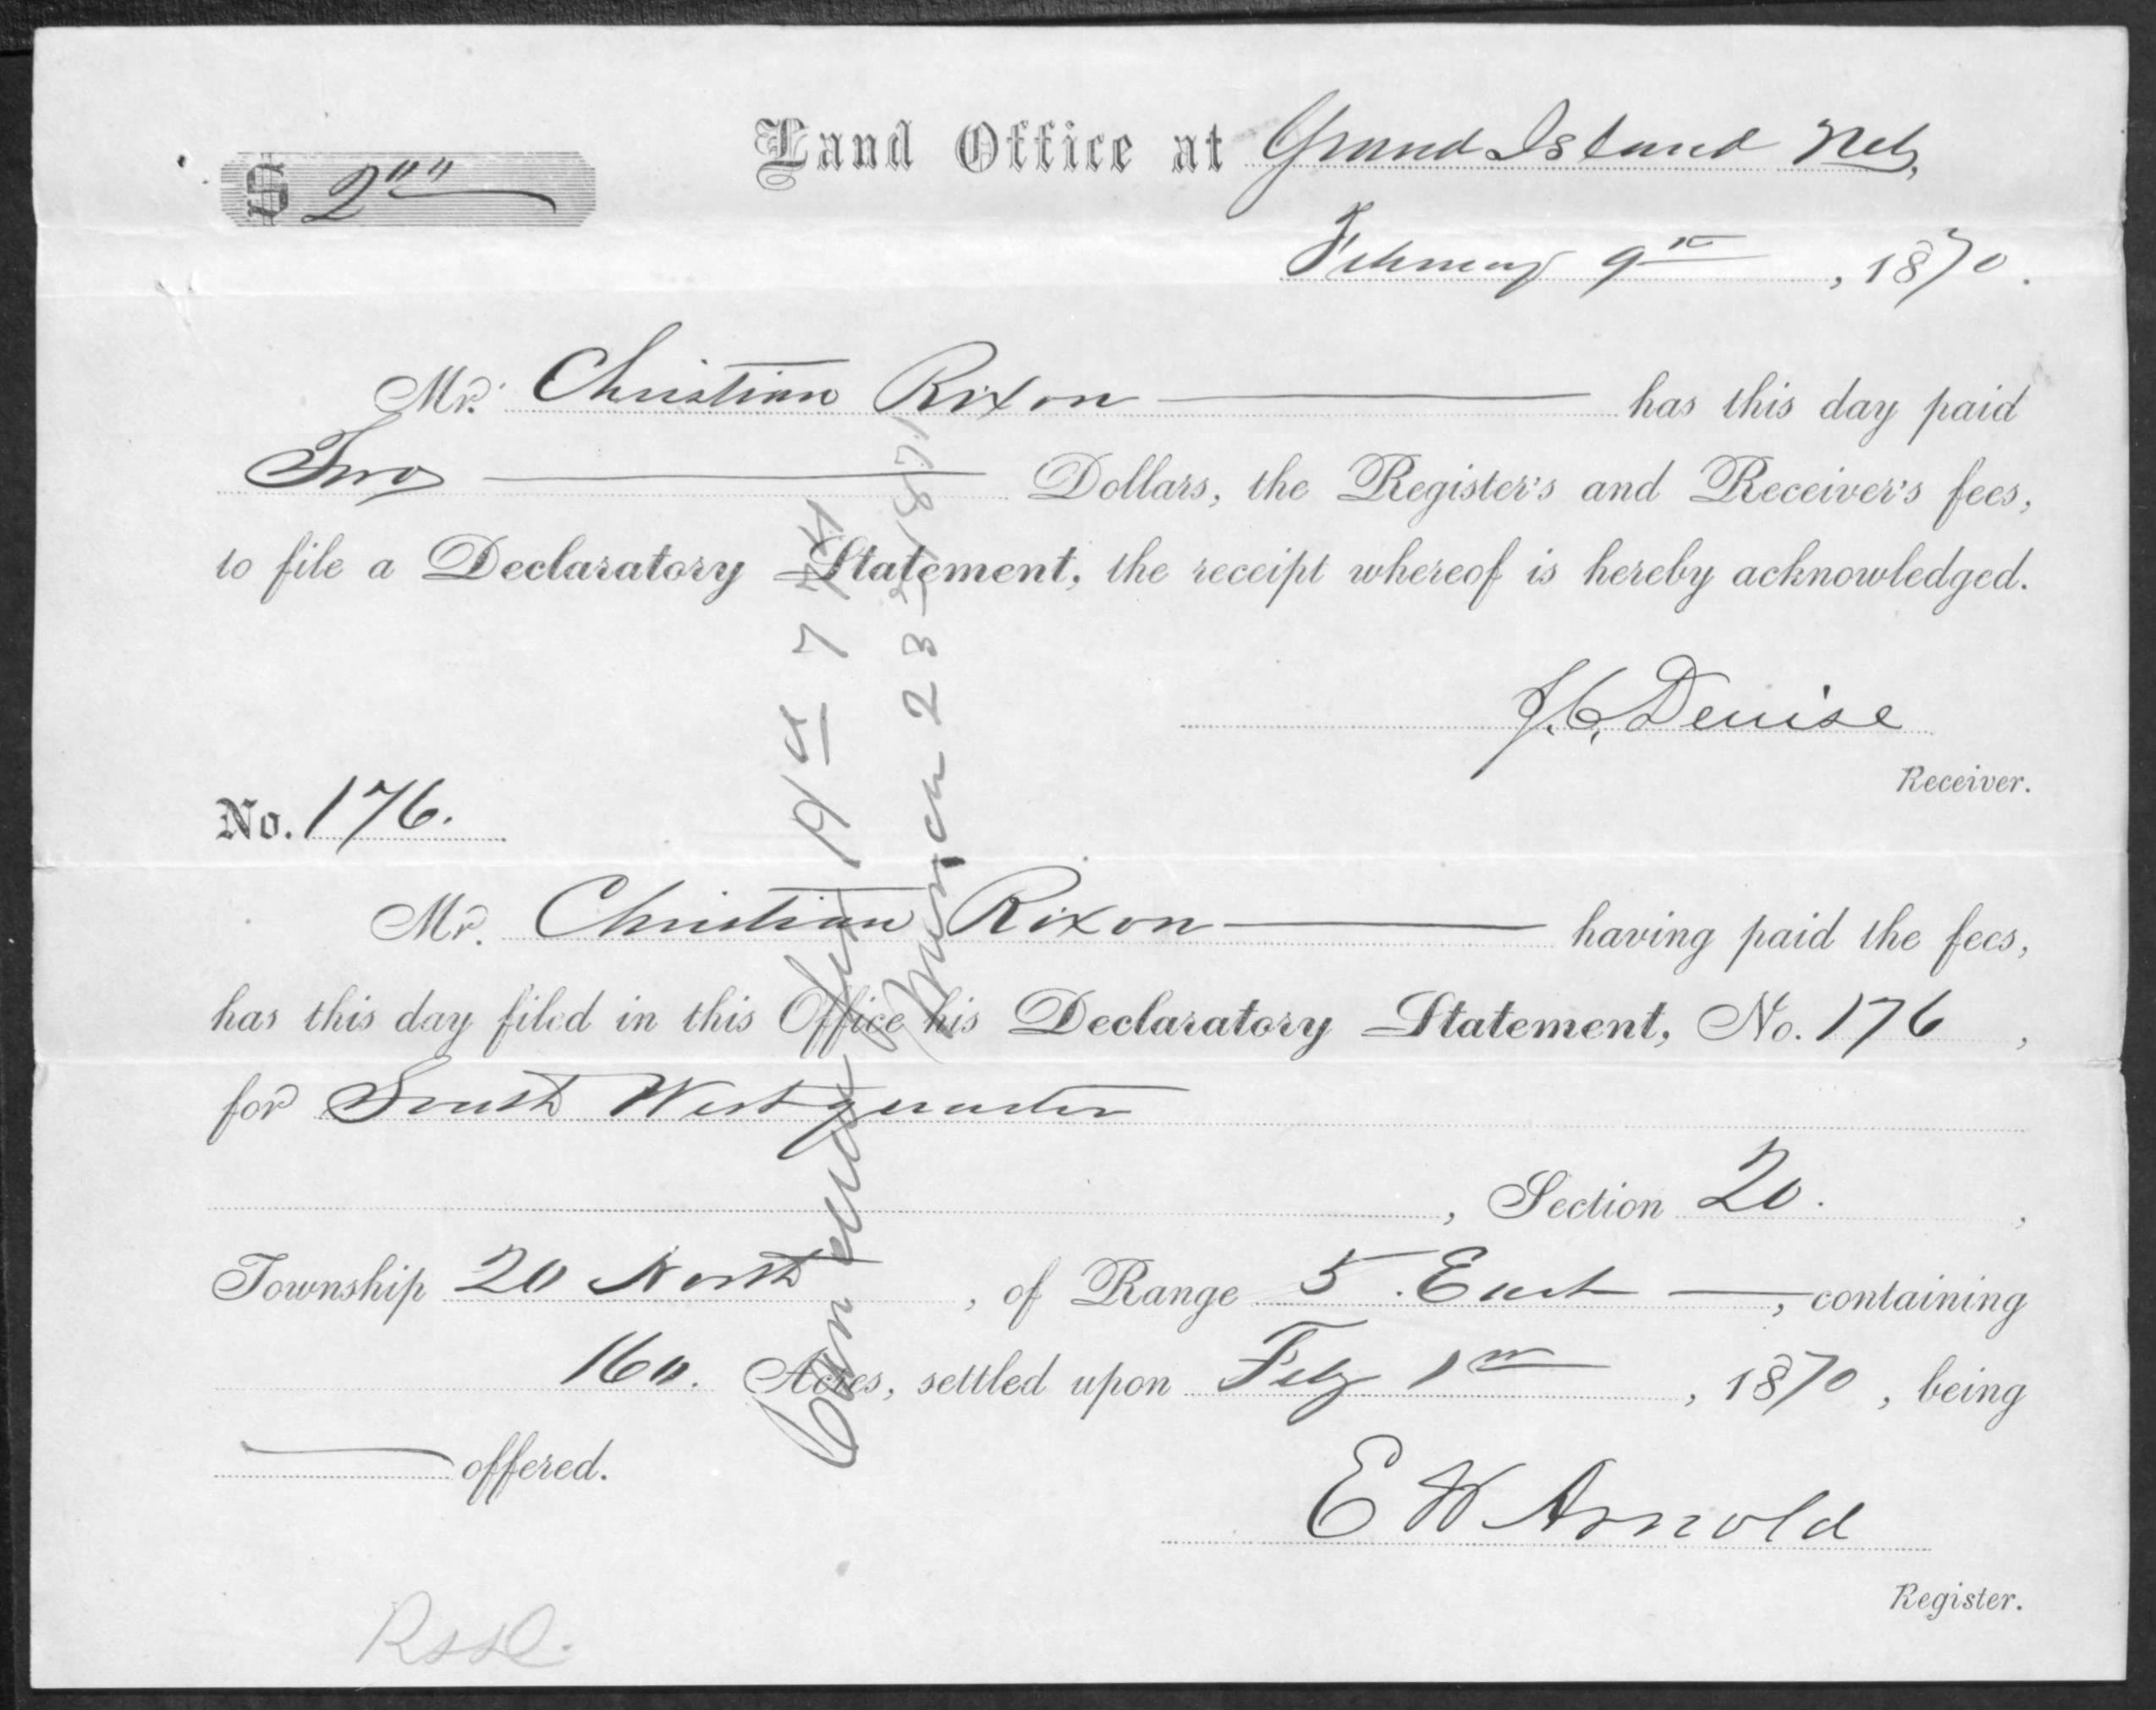 $ 2"" Land Office at Grand Island Neb,
February 9th, 1870.
Mr. Christian Rixon has this day paid
Two Dollars, the Register's and Receiver's fees,
to file a Declaratory Statement, the receipt whereof is hereby acknowledged.
J. C. Denise
Receiver.
No. 176.
Mr. Christian Rixon having paid the fees,
has this day filed in this Office his Declaratory Statement, No. 176,
for South West quarter
, Section 20.,
Township 20 North, of Range 5 East, containing
160. Acres, settled upon Feby 1st, 1870, being
offered.
E W Arnold
Register.
March 23 1871